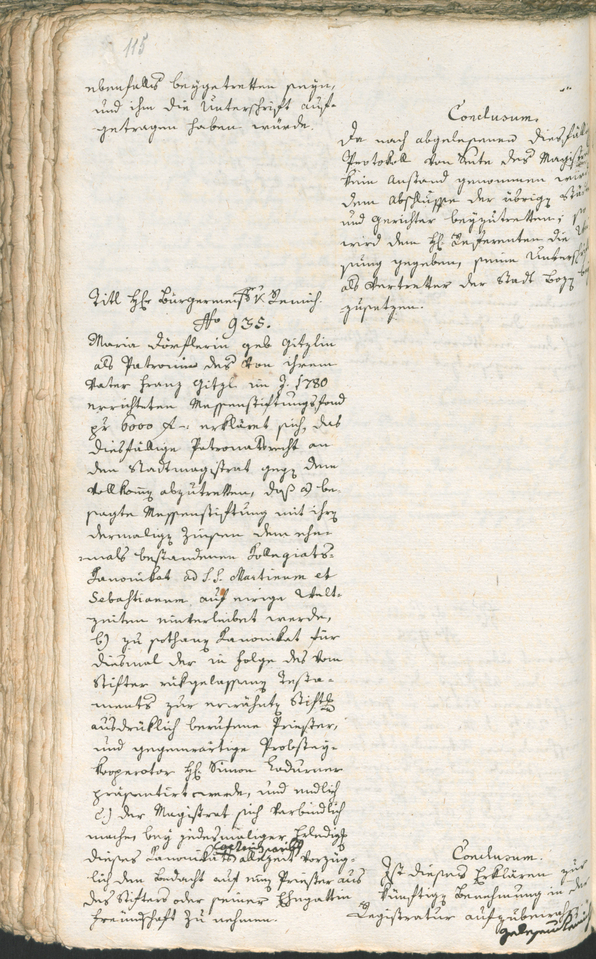 115
ebenfalls beygetretten seyn,
und ihm die Unterschrift auf-
getragen haben würde.
Conclusum.
Da nach abgelesenen diesfälli
Protokoll von Seite des Magistr
kein Anstand genommen wird
dem Abschlusse der übrigen Städ
und Gerichter beyzutretten; so
wird dem H. Referenten die
sung gegeben, seine Unterschrift
als Vertretter der Stadt Bozen bey
zusetzen.
Titl H. Bürgermeister v. Remich.
No 935.
Maria Dörflerin geb Gitzlin
als Patronin des von ihrem
Vater Franz Gitzl im J. 1780
errichteten Messenstiftungsfond
pr. 6000 f. erkläret sich, das
diesfällige Patronatsrecht an
den Stadtmagistrat gegen dem
vollkommen abzutretten, daß a) be-
sagte Messenstiftung mit ihren
dermaligen Zinsen dem ehe-
mals bestandenen Kollegiats-
Kanonikat ad S.S. Martinum et
Sebastianum auf ewige Welt-
zeiten einverleibet werde,
b) zu sothanen Kanonikat für
diesmal der in Folge des vom
Stifter rükgelassenen Testa-
ments zur erwähnten Stiftung
ausdrüklich berufene Priester,
und gegenwärtige Probstey-
Kooperator H. Simon Ladurner
präsentiret werde, und endlich
c.) der Magistrat sich verbindlich
machen, bey jedesmaliger Erledigung
dieses Kanonikats allezeit vorzüg-
lich den Bedacht auf einen Priester aus
des Stifters oder seiner Ehegattin
Freundschaft zu nehmen.
Conclusum.
Ist dieses Erklären zur
künftigen Benehmung in der
Registratur aufzubewahren.